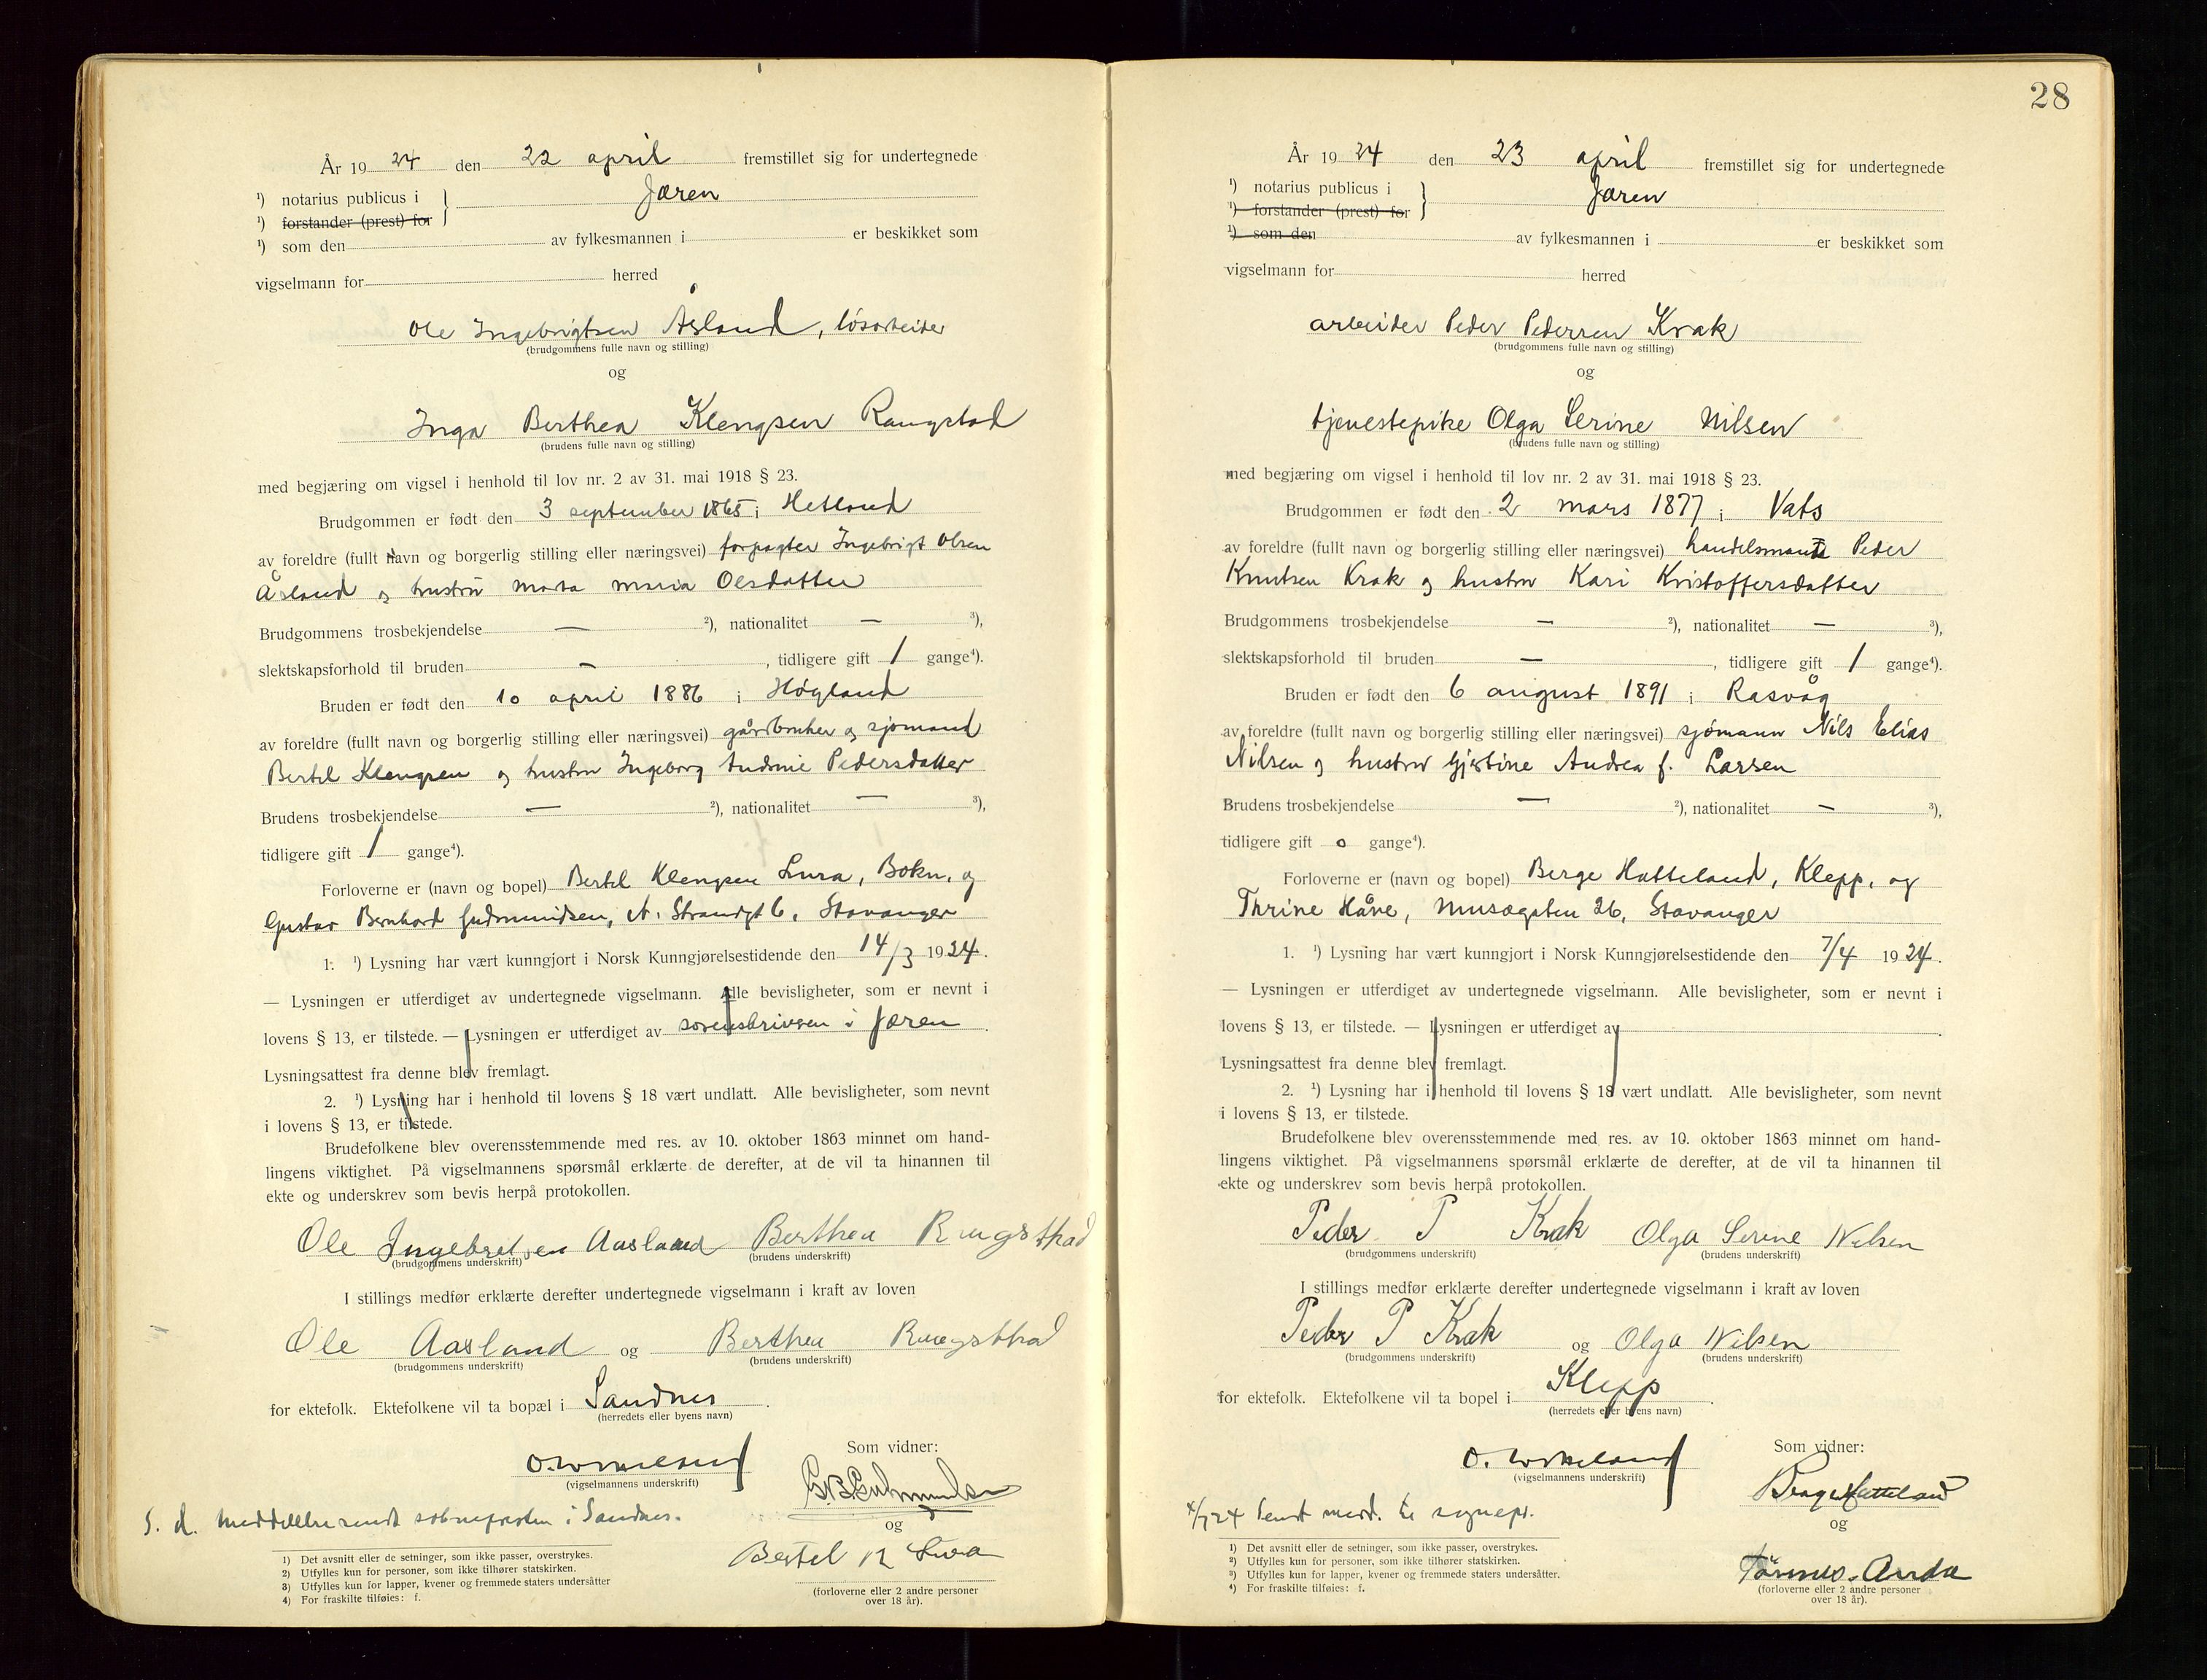 År 19 24 den 22 april fremstillet sig for undertegnede
¹) notarius publicus i
Jæren
¹) forstander (prest) for
¹) som den av fylkesmannen i er beskikket som
vigselmann for herred
Ole Ingebrigtsen Åsland, løsarbeider
(brudgommens fulle navn og stilling)
og
Inga Berthea Klengsen Raugstad
(brudens fulle navn og stilling)
med begjæring om vigsel i henhold til lov nr. 2 av 31. mai 1918 § 23.
Brudgommen er født den 3 september 1865 i Hetland
av foreldre (fullt navn og borgerlig stilling eller næringsvei) forpagter Ingebrigt Olsen
Åsland og hustru Marta Maria Olsdatter
Brudgommens trosbekjendelse — ²), nationalitet — ³),
slektskapsforhold til bruden — , tidligere gift 1 gange⁴).
Bruden er født den 10 april 1886 i Høgland
av foreldre (fullt navn og borgerlig stilling eller næringsvei) gårdbruker og sjømand
Bertel Klengsen og hustru Ingeborg Andrine Pedersdatter
Brudens trosbekjendelse — ²), nationalitet — ³),
tidligere gift 1 gange⁴).
Forloverne er (navn og bopel) Bertel Klengsen Lura, Bokn, og
Gustav Bernhard Gudmundsen, N. Strandgt 6, Stavanger
1. ¹) Lysning har vært kunngjort i Norsk Kunngjørelsestidende den 14/3 1924.
— Lysningen er utferdiget av undertegnede vigselmann. Alle bevisligheter, som er nevnt i
lovens § 13, er tilstede. — Lysningen er utferdiget av sorenskriveren i Jæren.
Lysningsattest fra denne blev fremlagt.
2. ¹) Lysning har i henhold til lovens § 18 vært undlatt. Alle bevisligheter, som nevnt
i lovens § 13, er tilstede.
Brudefolkene blev overensstemmende med res. av 10. oktober 1863 minnet om hand-
lingens viktighet. På vigselmannens spørsmål erklærte de derefter, at de vil ta hinannen til
ekte og underskrev som bevis herpå protokollen.
Ole Ingebretsen Aasland Berthea Raugsthad
(brudgommens underskrift) (brudens underskrift)
I stillings medfør erklærte derefter undertegnede vigselmann i kraft av loven
Ole Aasland og Berthea Raugsthad
(brudgommens underskrift) (brudens underskrift)
for ektefolk. Ektefolkene vil ta bopæl i Sandnes.
(herredets eller byens navn)
Som vidner:
O. Wikeland
(vigselmannens underskrift)
G. B. Gudmundsen
S. d. meddelelse sendt sognepresten i Sandnes.
og
Bertel K Lura
(forloverne eller 2 andre personer
over 18 år).
1) Det avsnitt eller de setninger, som ikke passer, overstrykes.
2) Utfylles kun for personer, som ikke tilhører statskirken.
3) Utfylles kun for lapper, kvener og fremmede staters undersåtter
4) For fraskilte tilføies: f.
28
År 19 24 den 23 april fremstillet sig for undertegnede
¹) notarius publicus i
Jæren
¹) forstander (prest) for
¹) som den av fylkesmannen i er beskikket som
vigselmann for herred
arbeider Peder Pedersen Krak
(brudgommens fulle navn og stilling)
og
tjenestepike Olga Serine Nilsen
(brudens fulle navn og stilling)
med begjæring om vigsel i henhold til lov nr. 2 av 31. mai 1918 § 23.
Brudgommen er født den 2 mars 1877 i Vats
av foreldre (fullt navn og borgerlig stilling eller næringsvei) handelsmann Peder
Knutsen Krak og hustru Kari Kristoffersdatter
Brudgommens trosbekjendelse — ²), nationalitet — ³),
slektskapsforhold til bruden — , tidligere gift 1 gange⁴).
Bruden er født den 6 august 1891 i Rasvåg
av foreldre (fullt navn og borgerlig stilling eller næringsvei) sjømann Nils Elias
Nilsen og hustru Gjertine Andrea f. Larsen
Brudens trosbekjendelse — ²), nationalitet — ³),
tidligere gift 0 gange⁴).
Forloverne er (navn og bopel) Berge Hatteland, Klepp, og
Thrine Håve, Musægaten 26, Stavanger
1. ¹) Lysning har vært kunngjort i Norsk Kunngjørelsestidende den 7/4 1924.
— Lysningen er utferdiget av undertegnede vigselmann. Alle bevisligheter, som er nevnt i
lovens § 13, er tilstede. — Lysningen er utferdiget av .
Lysningsattest fra denne blev fremlagt.
2. ¹) Lysning har i henhold til lovens § 18 vært undlatt. Alle bevisligheter, som nevnt
i lovens § 13, er tilstede.
Brudefolkene blev overensstemmende med res. av 10. oktober 1863 minnet om hand-
lingens viktighet. På vigselmannens spørsmål erklærte de derefter, at de vil ta hinannen til
ekte og underskrev som bevis herpå protokollen.
Peder P Krak Olga Serine Nilsen
(brudgommens underskrift) (brudens underskrift)
I stillings medfør erklærte derefter undertegnede vigselmann i kraft av loven
Peder P Krak og Olga Nilsen
(brudgommens underskrift) (brudens underskrift)
for ektefolk. Ektefolkene vil ta bopel i Klepp.
(herredets eller byens navn)
Som vidner:
O. Wikeland
(vigselmannens underskrift)
Berge Hatteland
24 Sendt medd. til sognepr.
og
Tønnes Anda
(forloverne eller 2 andre personer
over 18 år).
1) Det avsnitt eller de setninger, som ikke passer, overstrykes.
2) Utfylles kun for personer, som ikke tilhører statskirken.
3) Utfylles kun for lapper, kvener og fremmede staters undersåtter.
4) For fraskilte tilføies: f.